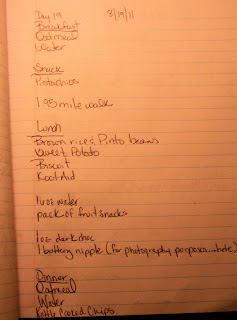 Day 19 8/19/11
Breakfast
Oatmeal
Water
Snack
Pistachios
1.95 mile walk
Lunch
Brown rice & Pinto beans
Sweet Potato
Biscuit
Kool-Aid
16 oz water
pack of fruit snacks
1 oz dark choc
1 buttery nipple (for photography purposes...haha)
Dinner
Oatmeal
Water
Kettle Cooked Chips